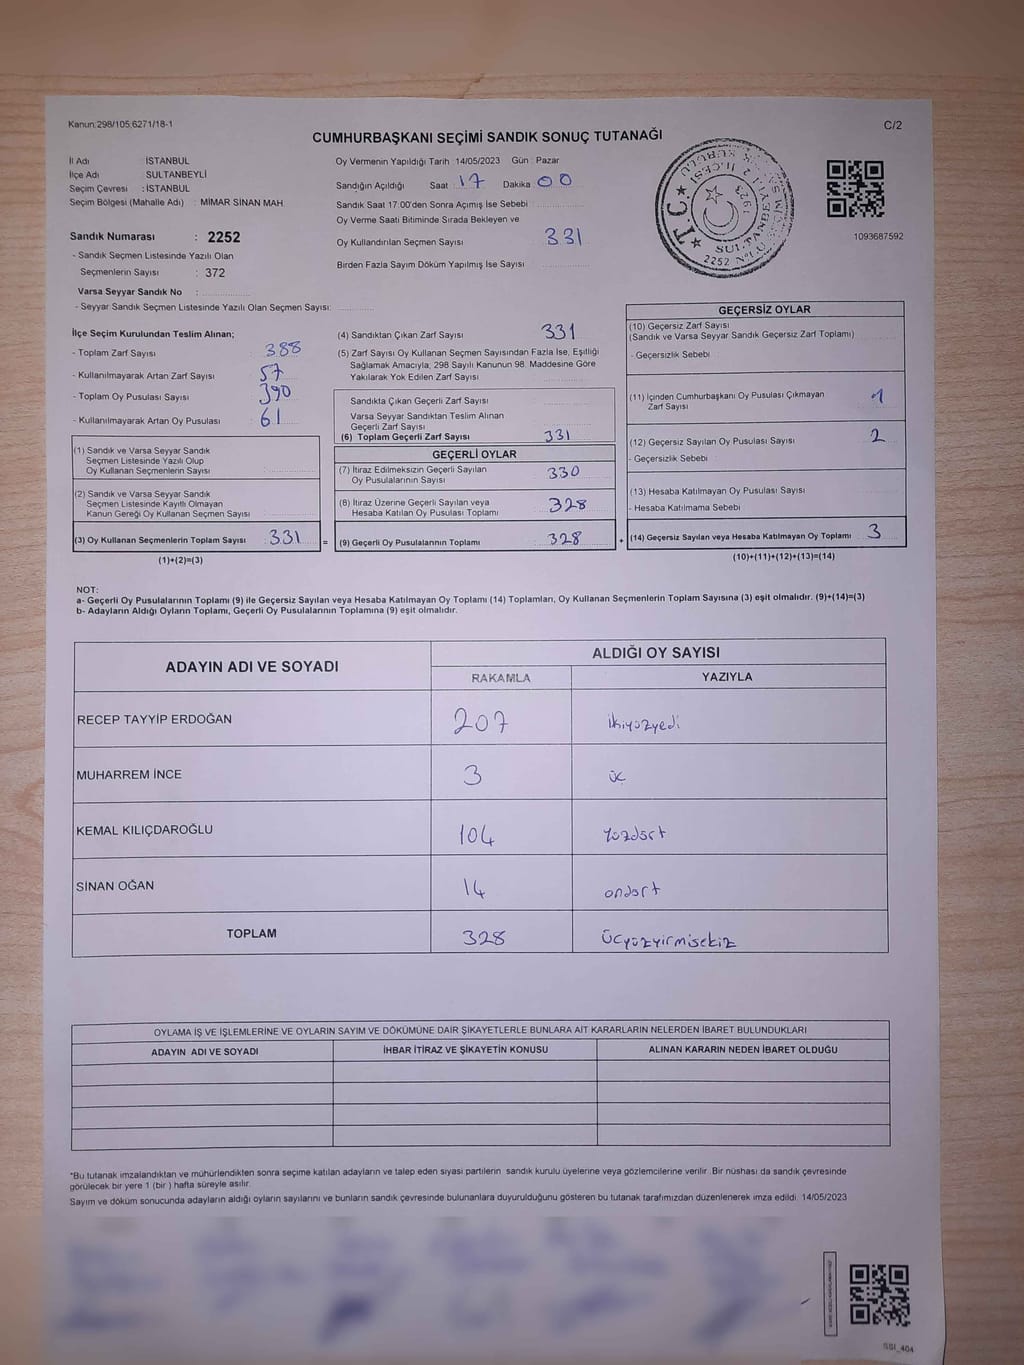 Kanun:298/105;6271/18-1
C/2
CUMHURBAŞKANI SEÇİMİ SANDIK SONUÇ TUTANAĞI
İl Adı : İSTANBUL
İlçe Adı : SULTANBEYLİ
Seçim Çevresi : İSTANBUL
Seçim Bölgesi (Mahalle Adı) : MİMAR SİNAN MAH
Sandık Numarası : 2252
- Sandık Seçmen Listesinde Yazılı Olan
Seçmenlerin Sayısı : 372
Varsa Seyyar Sandık No :
- Seyyar Sandık Seçmen Listesinde Yazılı Olan Seçmen Sayısı:
Oy Vermenin Yapıldığı Tarih :14/05/2023 Gün : Pazar
Sandığın Açıldığı Saat : 17 Dakika 00
Sandık Saat 17:00'den Sonra Açımış İse Sebebi :
Oy Verme Saati Bitiminde Sırada Bekleyen ve
Oy Kullandırılan Seçmen Sayısı 331
Birden Fazla Sayım Döküm Yapılmış İse Sayısı
T.C.
2252 N'LU
1093687592
İlçe Seçim Kurulundan Teslim Alınan;
- Toplam Zarf Sayısı 388
- Kullanılmayarak Artan Zarf Sayısı 57
- Toplam Oy Pusulası Sayısı 390
- Kullanılmayarak Artan Oy Pusulası 61
(1) Sandık ve Varsa Seyyar Sandık
Seçmen Listesinde Yazılı Olup
Oy Kullanan Seçmenlerin Sayısı
(2) Sandık ve Varsa Seyyar Sandık
Seçmen Listesinde Kayıtlı Olmayan
Kanun Gereği Oy Kullanan Seçmen Sayısı
(3) Oy Kullanan Seçmenlerin Toplam Sayısı 331 =
(1)+(2)=(3)
(4) Sandıktan Çıkan Zarf Sayısı 331
(5) Zarf Sayısı Oy Kullanan Seçmen Sayısından Fazla İse, Eşitliği
Sağlamak Amacıyla; 298 Sayılı Kanunun 98. Maddesine Göre
Yakılarak Yok Edilen Zarf Sayısı
Sandıkta Çıkan Geçerli Zarf Sayısı
Varsa Seyyar Sandıktan Teslim Alınan
Geçerli Zarf Sayısı
(6) Toplam Geçerli Zarf Sayısı 331
GEÇERLİ OYLAR
(7) İtiraz Edilmeksizin Geçerli Sayılan
Oy Pusulalarının Sayısı 330
(8) İtiraz Üzerine Geçerli Sayılan veya
Hesaba Katılan Oy Pusulası Toplamı 328
(9) Geçerli Oy Pusulalarının Toplamı 328 +
GEÇERSİZ OYLAR
(10) Geçersiz Zarf Sayısı
(Sandık ve Varsa Seyyar Sandık Geçersiz Zarf Toplamı)
- Geçersizlik Sebebi
(11) İçinden Cumhurbaşkanı Oy Pusulası Çıkmayan
Zarf Sayısı 1
(12) Geçersiz Sayılan Oy Pusulası Sayısı 2
- Geçersizlik Sebebi
(13) Hesaba Katılmayan Oy Pusulası Sayısı
- Hesaba Katılmama Sebebi
(14) Geçersiz Sayılan veya Hesaba Katılmayan Oy Toplamı 3
(10)+(11)+(12)+(13)=(14)
NOT:
a- Geçerli Oy Pusulalarının Toplamı (9) ile Geçersiz Sayılan veya Hesaba Katılmayan Oy Toplamı (14) Toplamları, Oy Kullanan Seçmenlerin Toplam Sayısına (3) eşit olmalıdır. (9)+(14)=(3)
b- Adayların Aldığı Oyların Toplamı, Geçerli Oy Pusulalarının Toplamına (9) eşit olmalıdır.
ADAYIN ADI VE SOYADI
ALDIĞI OY SAYISI
RAKAMLA YAZIYLA
RECEP TAYYİP ERDOĞAN 207 ikiyüzyedi
MUHARREM İNCE 3 üç
KEMAL KILIÇDAROĞLU 104 yüzdört
SİNAN OĞAN 14 ondört
TOPLAM 328 üçyüzyirmisekiz
OYLAMA İŞ VE İŞLEMLERİNE VE OYLARIN SAYIM VE DÖKÜMÜNE DAİR ŞİKAYETLERLE BUNLARA AİT KARARLARIN NELERDEN İBARET BULUNDUKLARI
ADAYIN ADI VE SOYADI İHBAR İTİRAZ VE ŞİKAYETİN KONUSU ALINAN KARARIN NEDEN İBARET OLDUĞU
*Bu tutanak imzalandıktan ve mühürlendikten sonra seçime katılan adayların ve talep eden siyasi partilerin sandık kurulu üyelerine veya gözlemcilerine verilir. Bir nüshası da sandık çevresinde
görülecek bir yere 1 (bir) hafta süreyle asılır.
Sayım ve döküm sonucunda adayların aldığı oyların sayılarını ve bunların sandık çevresinde bulunanlara duyurulduğunu gösteren bu tutanak tarafımızdan düzenlenerek imza edildi. 14/05/2023